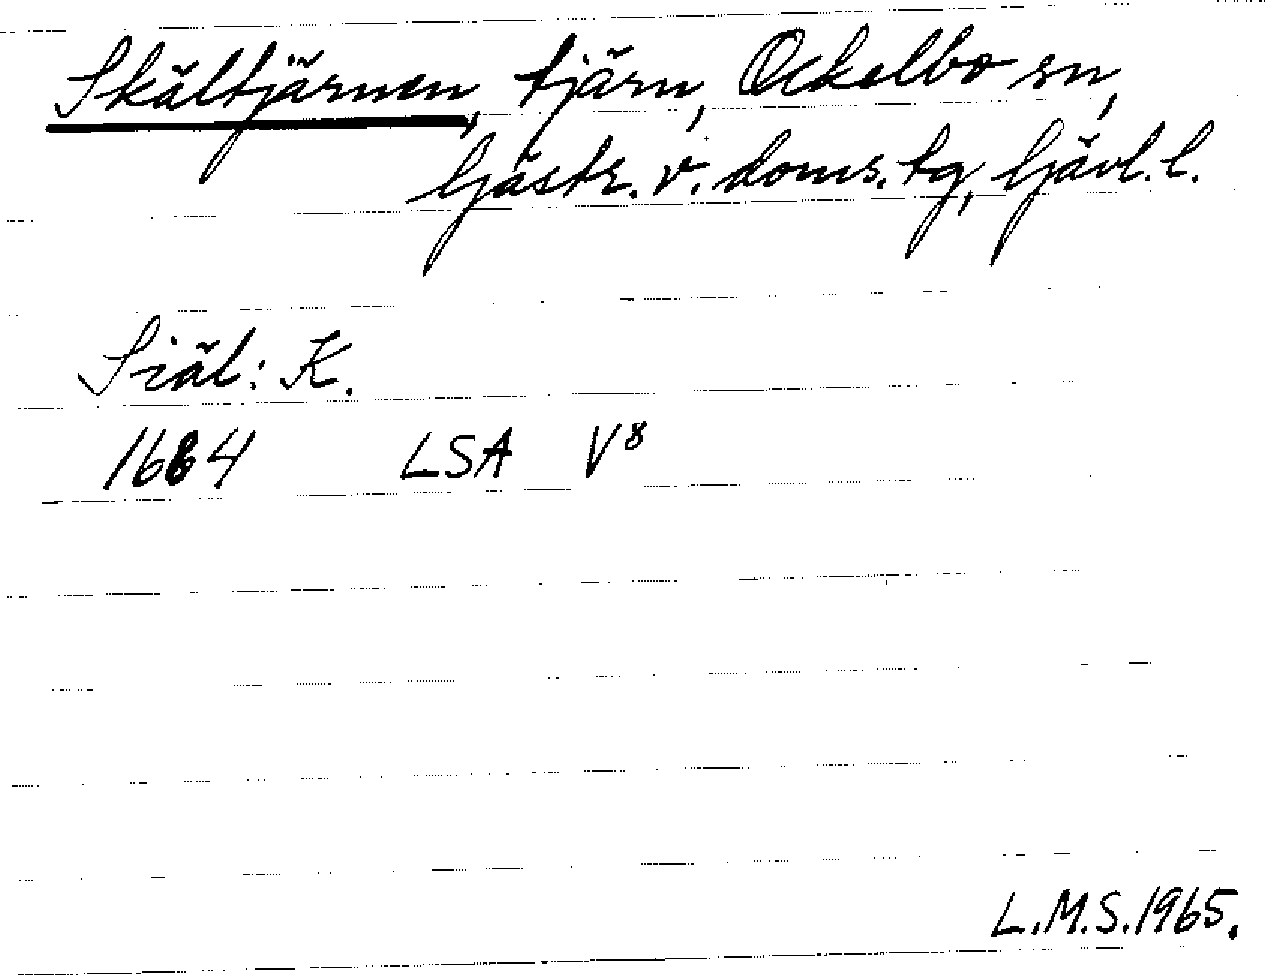 Skältjärnen, tjärn, Ockelbo sn,
Gästr. v. doms. tg, Gävl. l.
Siäl: K.
1684 LSA V⁸
L.M.S. 1965.